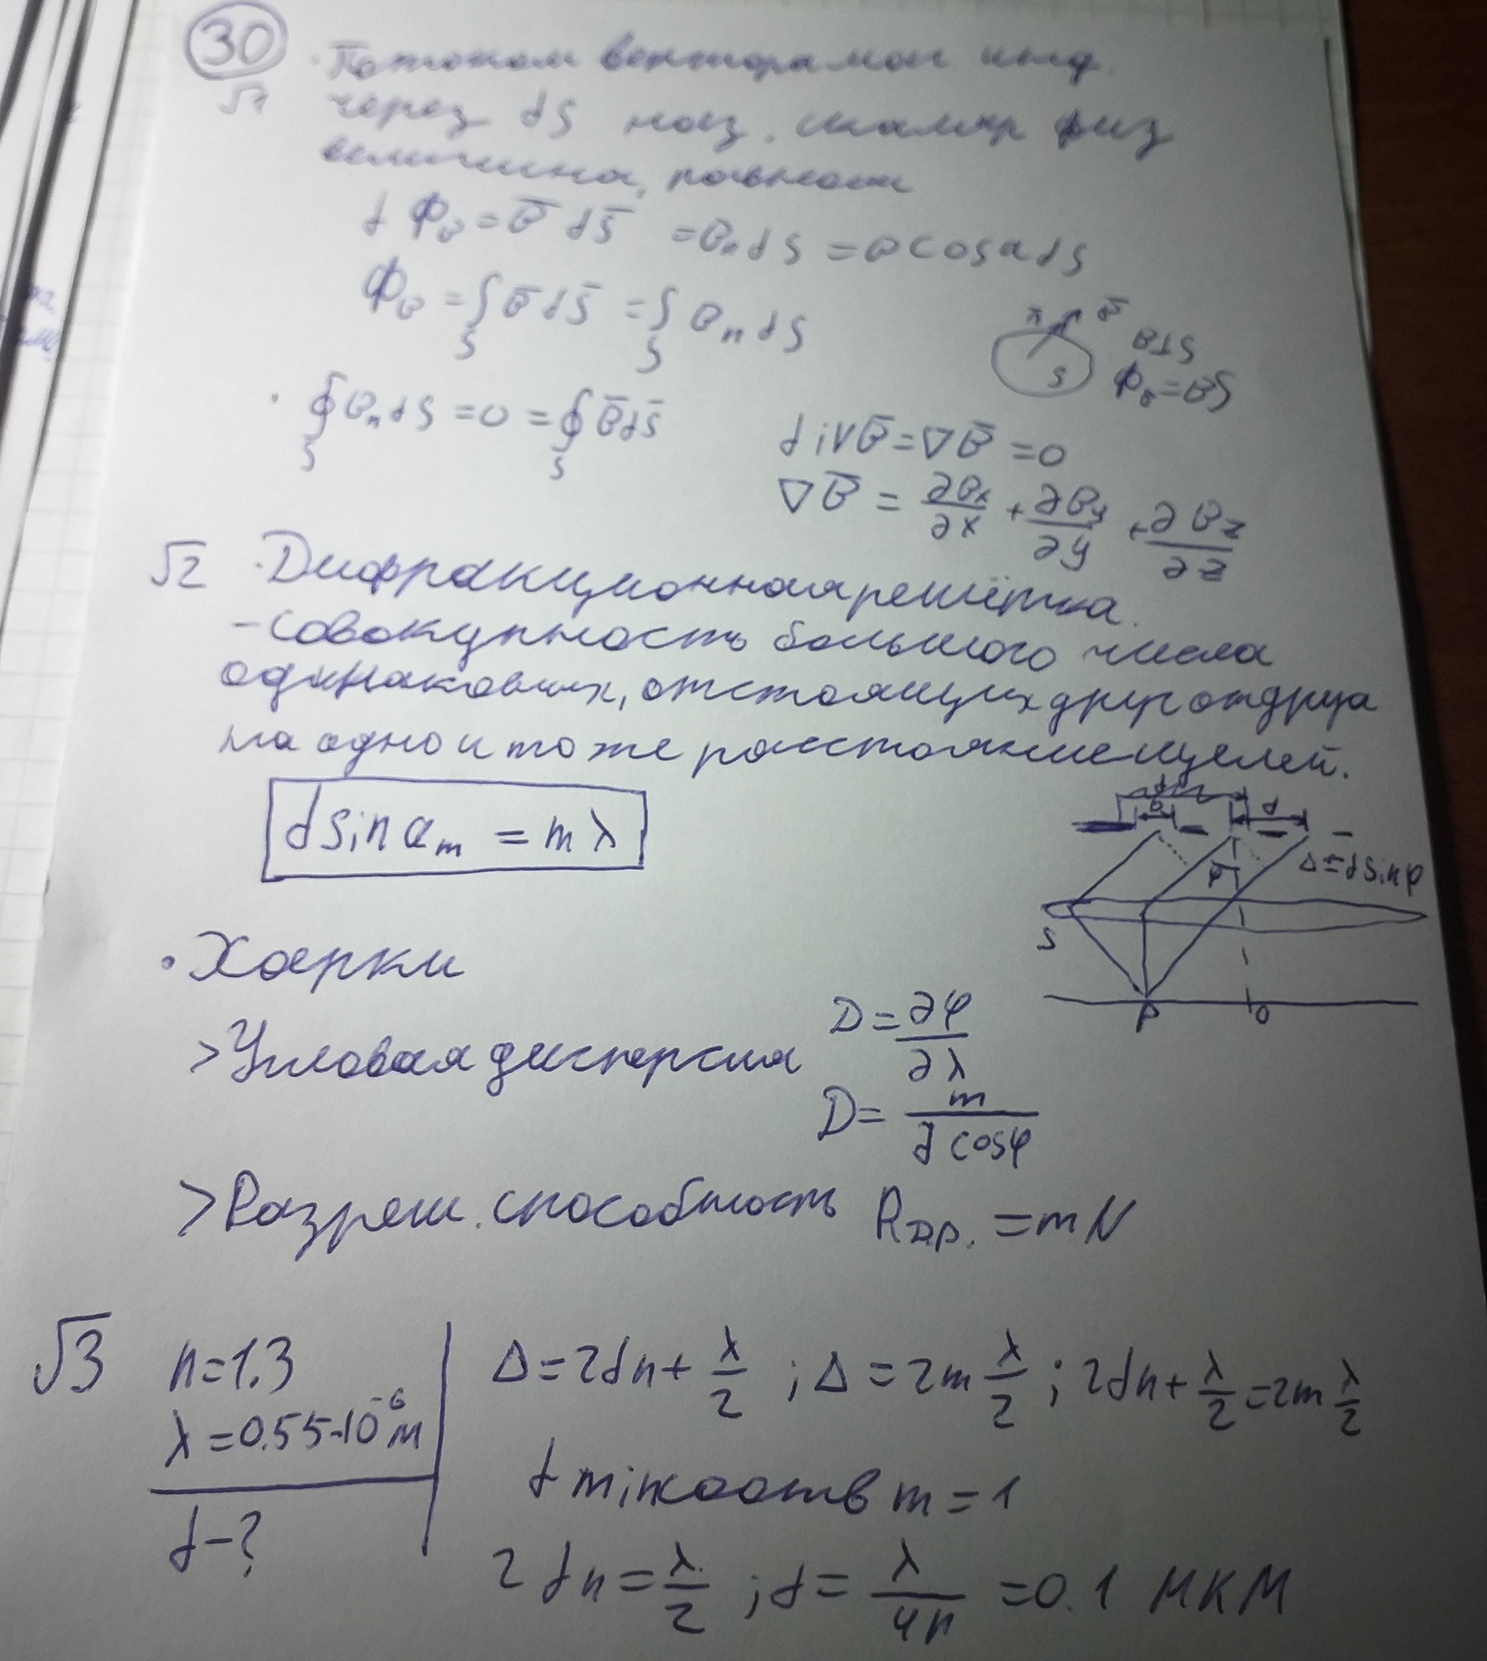 30
√1
· Потоком вектора маг инд.
через dS наз. скаляр физ
величина, равная
d Φ_B = B̄ dS̄ = B_n dS = B cosα dS
Φ_B = ∫_S B̄ dS̄ = ∫_S B_n dS
n̄ B̄
S
B⊥S
Φ_B = BS
· ∮_S B_n dS = 0 = ∮_S B̄dS̄
div B̄ = ∇B̄ = 0
∇B̄ = ∂Bx/∂x + ∂By/∂y + ∂Bz/∂z
√2 · Дифракционная решётка.
- совокупность большого числа
одинаковых, отстоящих друг от друга
на одно и то же расстояние щелей.
d sin α_m = m λ
b d
φ Δ = d sin φ
S
P O
· Харки
> Угловая дисперсия D = ∂φ/∂λ
D = m/(d cosφ)
> Разреш. способность R др. = m N
√3 n = 1.3
λ = 0.55·10⁻⁶ м
d - ?
Δ = 2dn + λ/2 ; Δ = 2m λ/2 ; 2dn + λ/2 = 2m λ/2
d min соотв m = 1
2dn = λ/2 ; d = λ/4n = 0.1 мкм